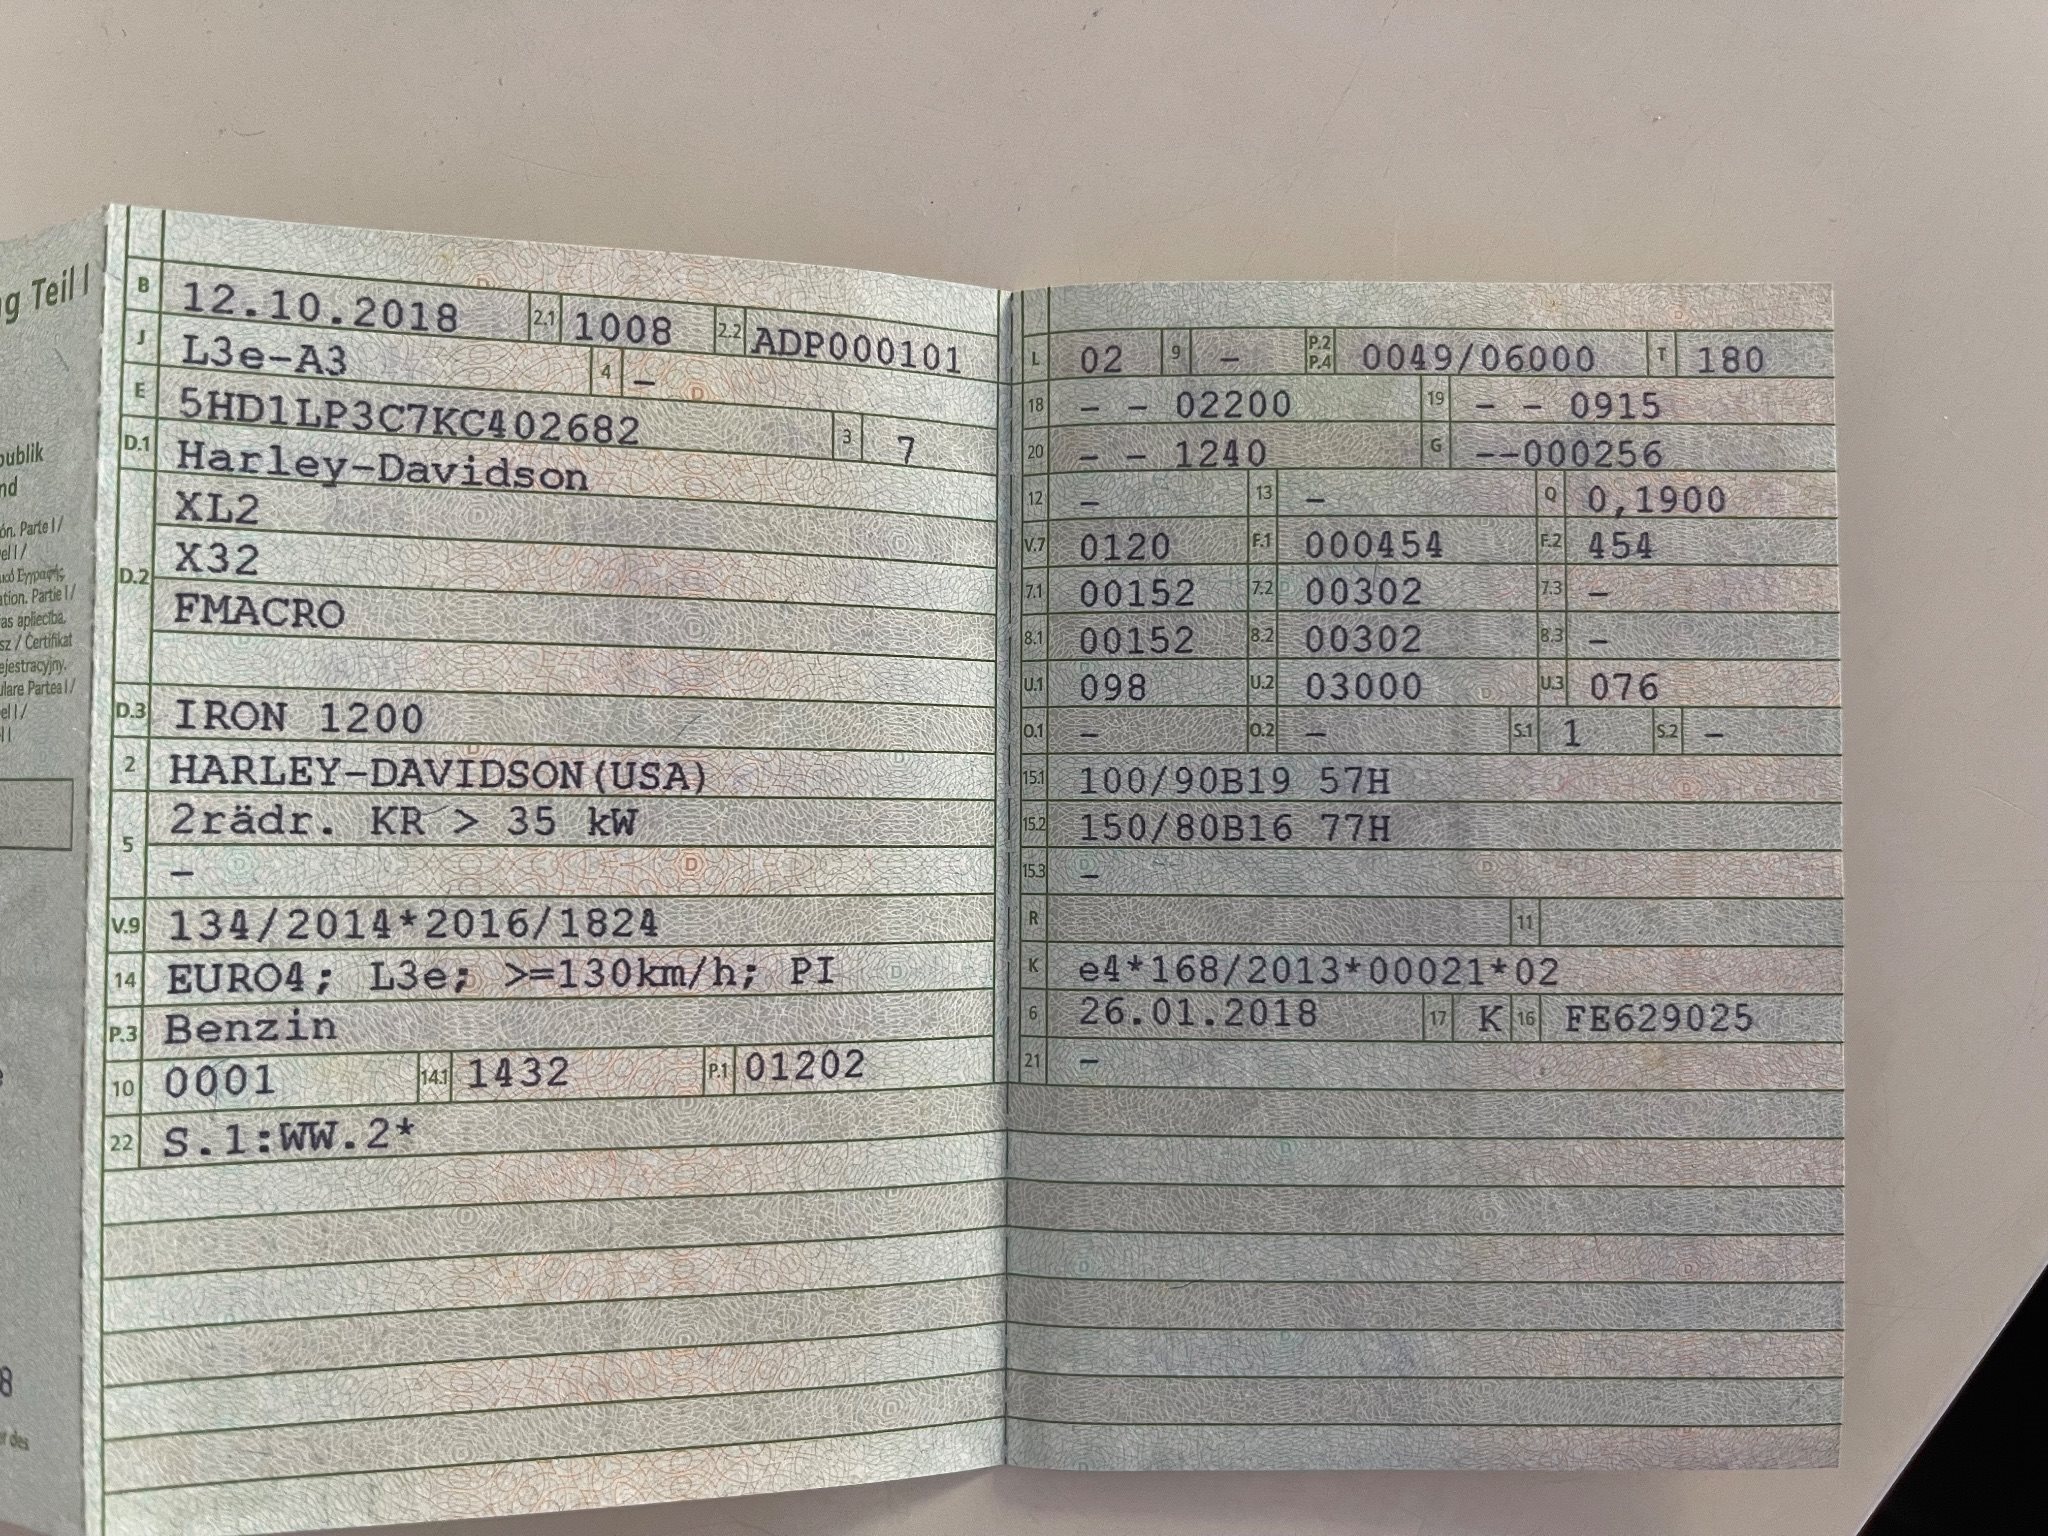 ng Teil I
publik
nd
ón. Parte I /
el I /
ation. Partie I /
as apliecība.
sz / Certifikat
ejestracyjny.
ulare Partea I /
el I /
8
des
B 12.10.2018 2.1 1008 2.2 ADP000101
J L3e-A3 4 -
E 5HD1LP3C7KC402682 3 7
D.1 Harley-Davidson
XL2
D.2 X32
FMACRO
D.3 IRON 1200
2 HARLEY-DAVIDSON(USA)
5 2rädr. KR > 35 kW
-
V.9 134/2014*2016/1824
14 EURO4; L3e; >=130km/h; PI
P.3 Benzin
10 0001 14.1 1432 P.1 01202
22 S.1:WW.2*
L 02 9 - P.2 P.4 0049/06000 T 180
18 - - 02200 19 - - 0915
20 - - 1240 G --000256
12 - 13 - Q 0,1900
V.7 0120 F.1 000454 F.2 454
7.1 00152 7.2 00302 7.3 -
8.1 00152 8.2 00302 8.3 -
U.1 098 U.2 03000 U.3 076
O.1 - O.2 - S.1 1 S.2 -
15.1 100/90B19 57H
15.2 150/80B16 77H
15.3 -
R 11
K e4*168/2013*00021*02
6 26.01.2018 17 K 16 FE629025
21 -